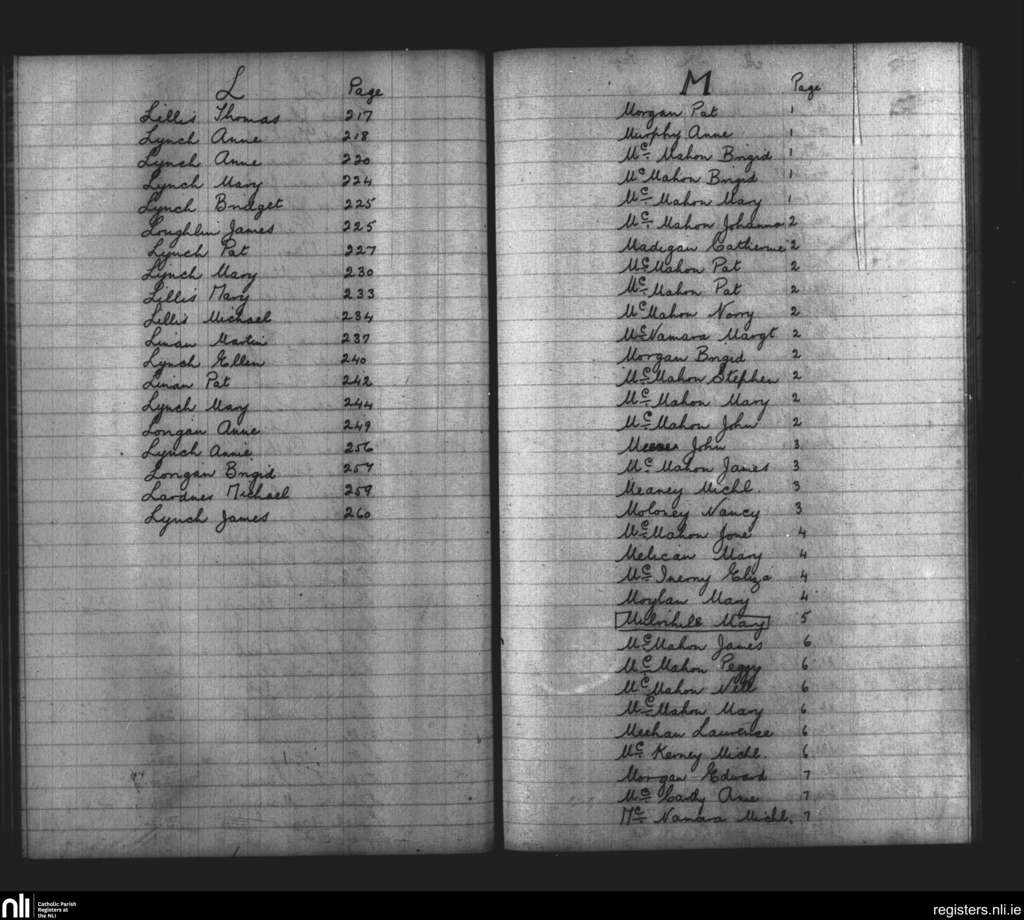 L
Page
Lillis Thomas 217
Lynch Anne 218
Lynch Anne 220
Lynch Mary 224
Lynch Bridget 225
Loughlin James 225
Lynch Pat 227
Lynch Mary 230
Lillis Mary 233
Lillis Michael 234
Linan Martin 237
Lynch Ellen 240
Linan Pat 242
Lynch Mary 244
Longan Anne 249
Lynch Annie 256
Longan Brigid 257
Lardner Michael 259
Lynch James 260
M
Page
Morgan Pat 1
Murphy Anne 1
Mc Mahon Brigid 1
Mc Mahon Brigid 1
Mc Mahon Mary 1
Mc Mahon Johanna 2
Madigan Catherine 2
Mc Mahon Pat 2
Mc Mahon Pat 2
Mc Mahon Norry 2
Mc Namara Margt 2
Morgan Brigid 2
Mc Mahon Stephen 2
Mc Mahon Mary 2
Mc Mahon John 2
John 3
Mc Mahon James 3
Meaney Michl. 3
Moloney Nancy 3
Mc Mahon Jone 4
Melican Mary 4
Mc Inerny Eliza 4
Moylan Mary 4
Mulvihile Mary 5
Mc Mahon James 6
Mc Mahon Peggy 6
Mc Mahon Nell 6
Mc Mahon Mary 6
Meehan Lawrence 6
Mc Kerney Michl. 6
Morgan Edward 7
Mc Carthy Ane 7
Mc Namara Michl. 7
nli
Catholic Parish
Registers at
the NLI
registers.nli.ie